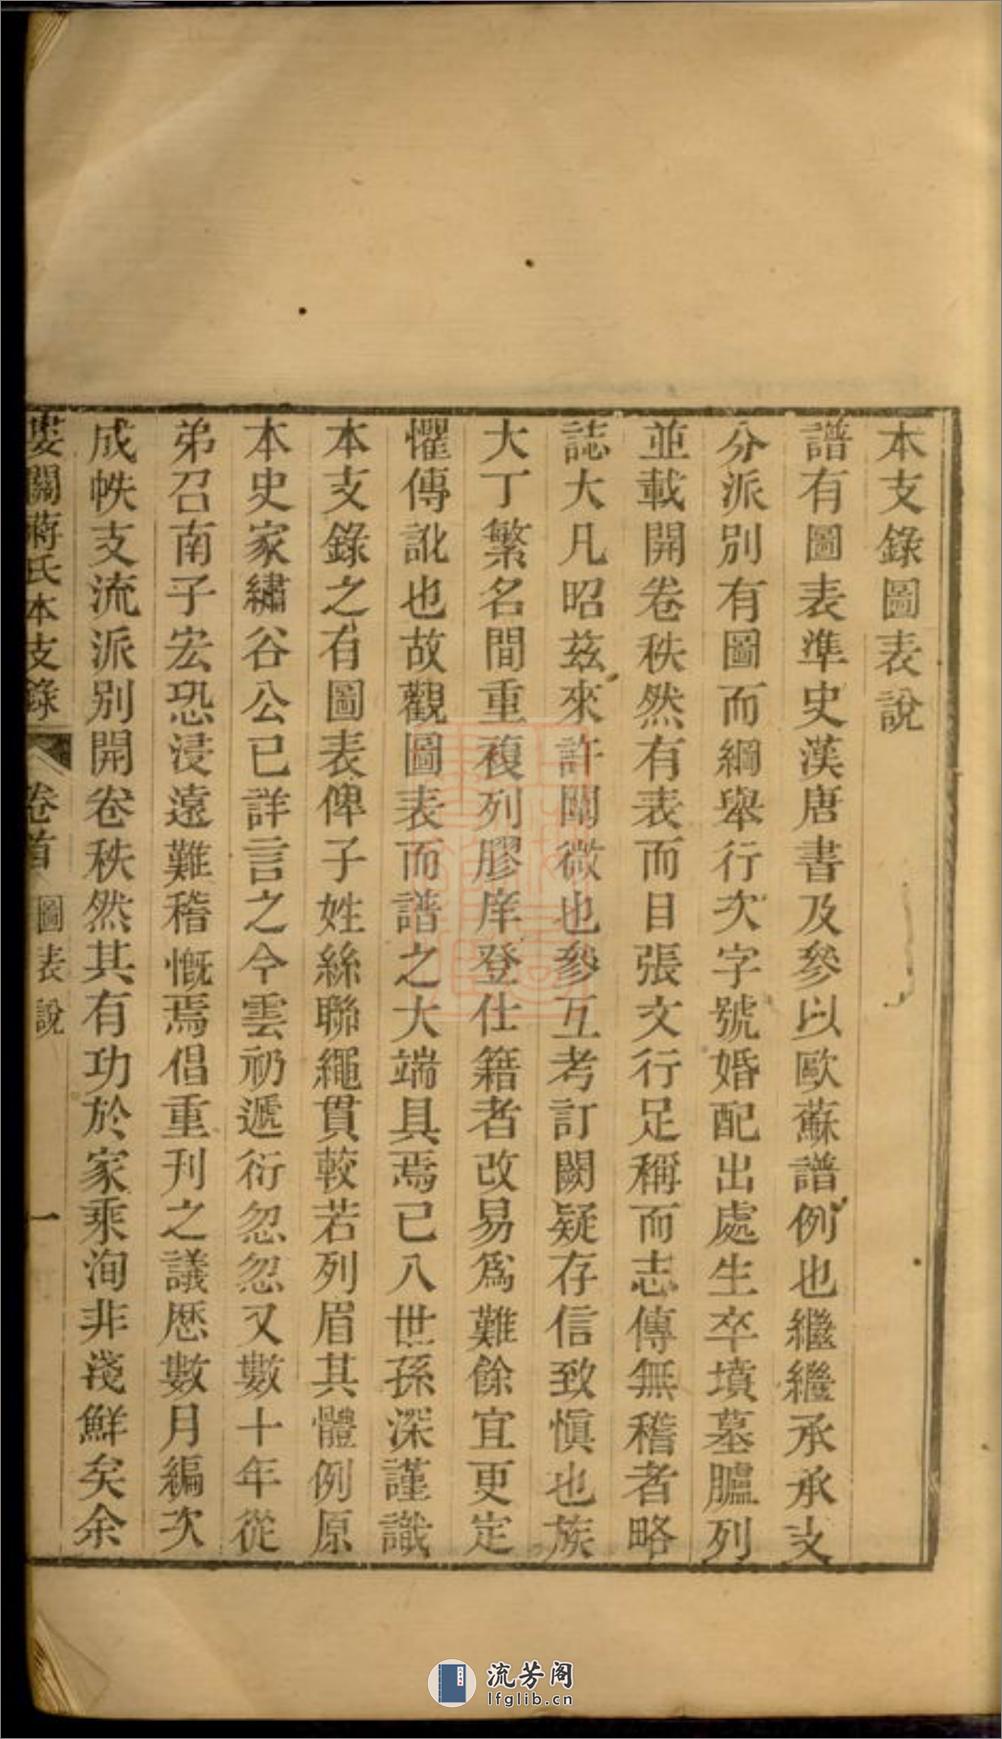 本支錄圖表說
譜有圖表準史漢唐書及參以歐蘇譜例也繼繼承承支
分派別有圖而綱舉行次字號婚配出處生卒墳墓臚列
並載開卷秩然有表而目張文行足稱而志傳無稽者略
誌大凡昭茲來許闡微也參互考訂闕疑存信致愼也族
大丁繁名間重複列膠庠登仕籍者改易爲難餘宜更定
懼傳訛也故觀圖表而譜之大端具焉已八世孫深謹識
本支錄之有圖表俾子姓絲聯繩貫較若列眉其體例原
本史家繡谷公已詳言之今雲礽遞衍忽忽又數十年從
弟召南子宏恐浸遠難稽慨焉倡重刊之議歴數月編次
成帙支流派別開卷秩然其有功於家乘洵非淺鮮矣余
婁關蔣氏本支錄 卷首 圖表說 一
流芳阁
lfglib.cn